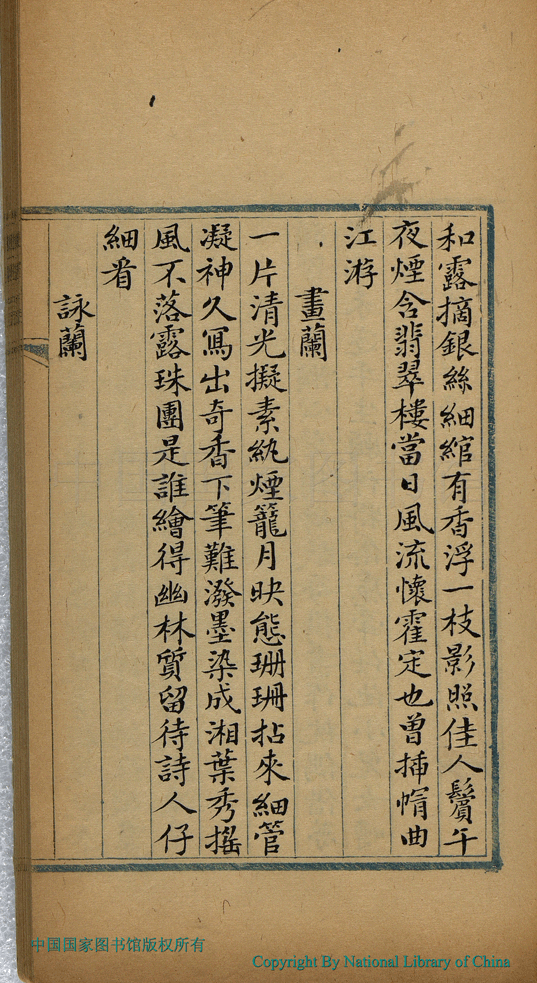 和露摘銀絲細綰有香浮一枝影照佳人鬢午
夜煙含翡翠樓當日風流懷霍定也曾插㡌曲
江游
畫蘭
一片清光擬素紈煙籠月映態珊珊拈來細管
凝神久寫出奇香下筆難潑墨染成湘葉秀搖
風不落露珠團是誰繪得幽林質留待詩人仔
細看
詠蘭
中国国家图书馆版权所有
Copyright By National Library of China